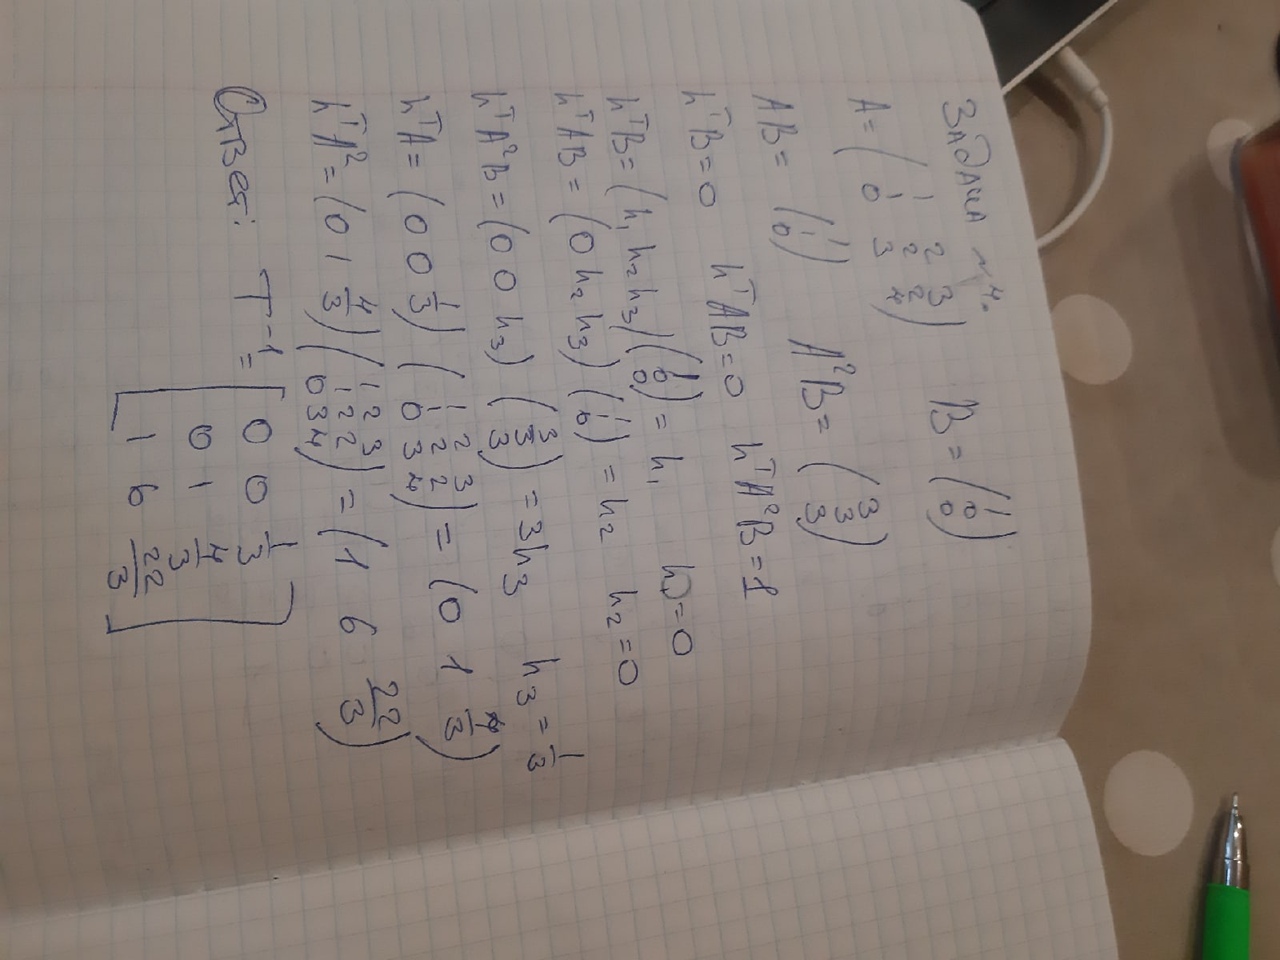 Задача №4.
A = ( 1 2 3 ; 1 2 2 ; 0 3 4 ) B = ( 1 ; 0 ; 0 )
AB = ( 1 ; 1 ; 0 ) A²B = ( 3 ; 3 ; 3 )
hᵀB = 0 hᵀAB = 0 hᵀA²B = 1
hᵀB = (h₁ h₂ h₃) ( 1 ; 0 ; 0 ) = h₁ h = 0
hᵀAB = (0 h₂ h₃) ( 1 ; 1 ; 0 ) = h₂ h₂ = 0
hᵀA²B = (0 0 h₃) ( 3 ; 3 ; 3 ) = 3h₃ h₃ = 1/3
hᵀA = (0 0 1/3) ( 1 2 3 ; 1 2 2 ; 0 3 4 ) = (0 1 4/3)
hᵀA² = (0 1 4/3) ( 1 2 3 ; 1 2 2 ; 0 3 4 ) = (1 6 22/3)
Ответ: T⁻¹ = [ 0 0 1/3 ; 0 1 4/3 ; 1 6 22/3 ]